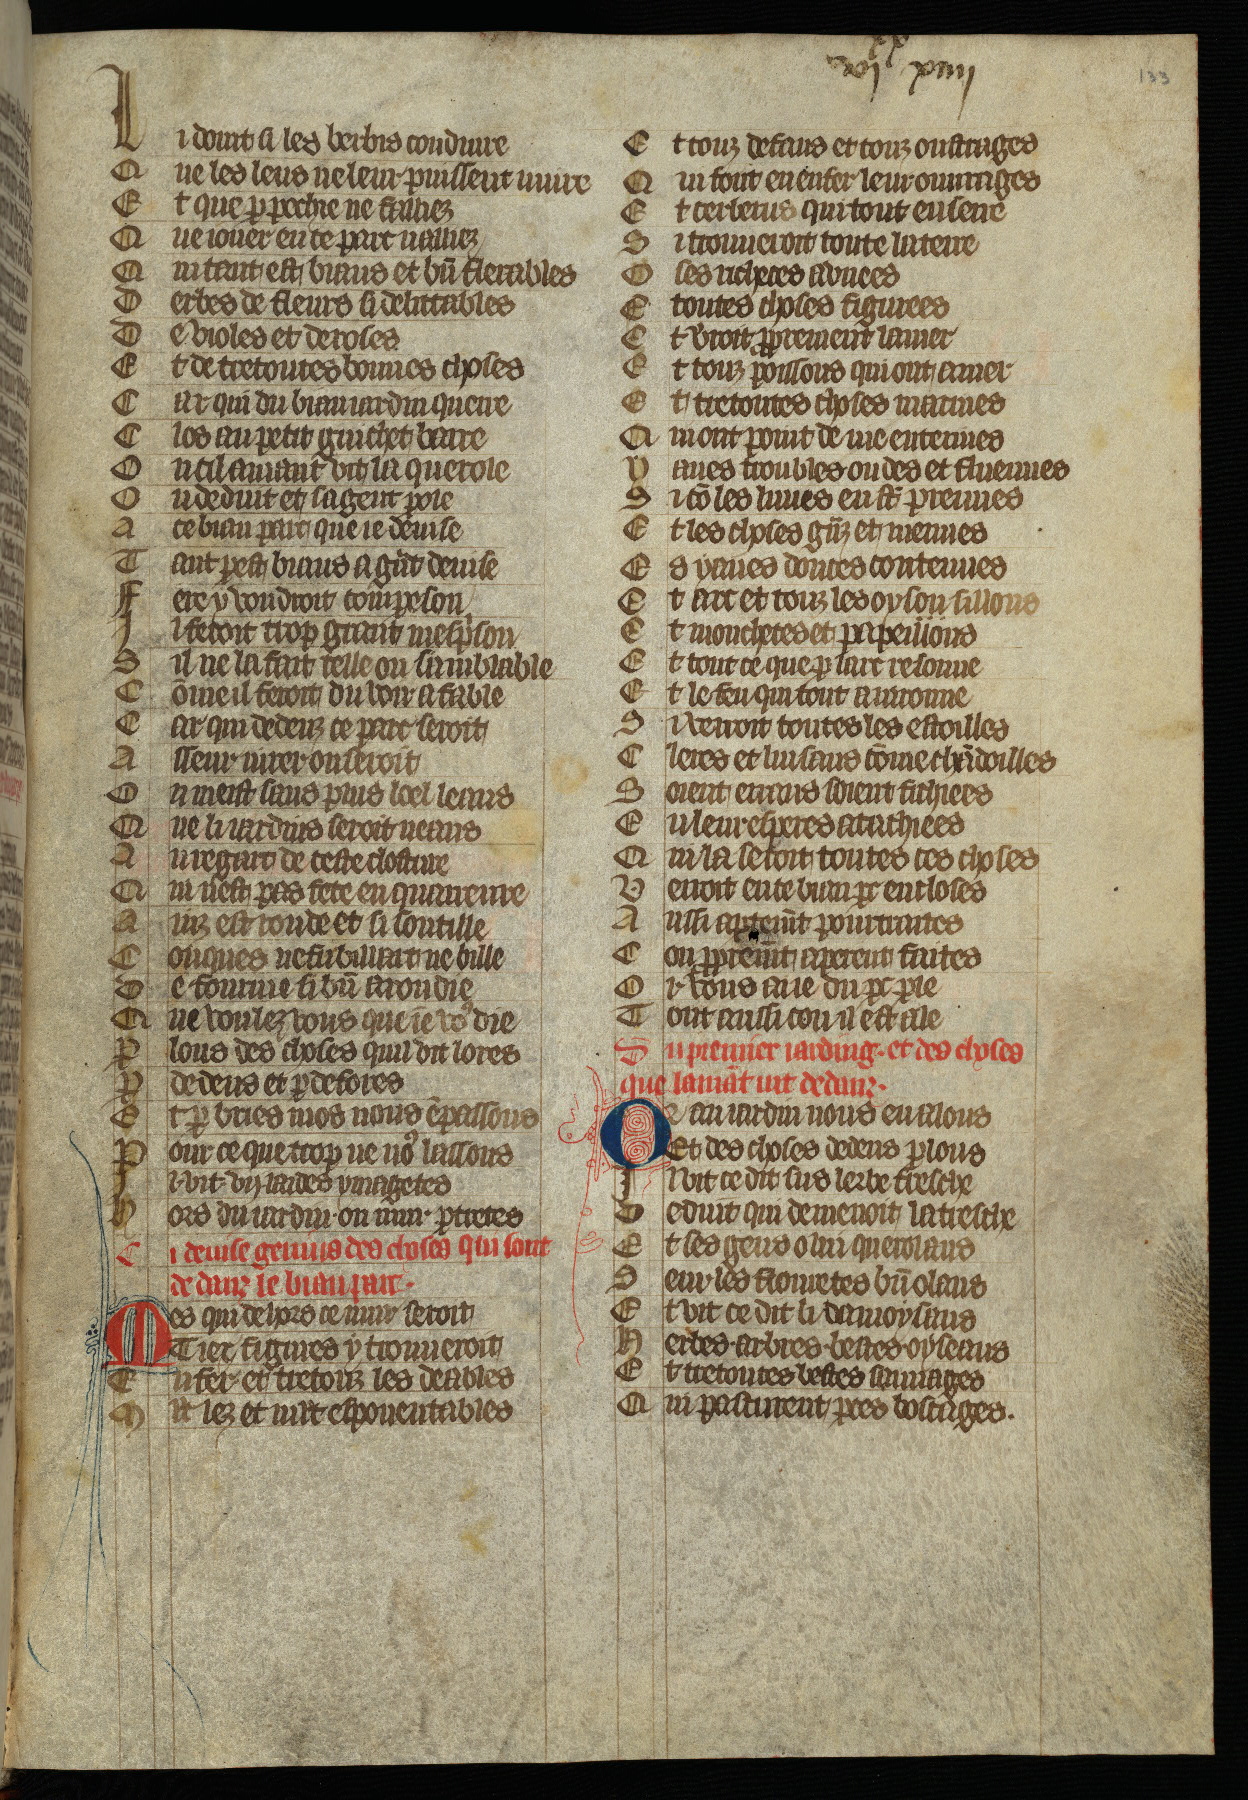 vi xx xiiii
133
Li doint si les berbis conduire
Que les leus ne leur puissent nuire
Et que p pechie ne failliez
Que iouer en ce parc nailliez
Qui tant est biaus et bñ flerables
Derbes de fleurs si delitables
De violes et de roses
Et de tretoutes bonnes choses
Car qui du biau iardin querre
Clos au petit guichet barre
Ou cil amant vit la querole
Ou deduit et sa gent pole
A ce biau parc que ie deuise
Tant pest biaus a grãt deuise
Fere y voudroit compeson
Il feroit trop grant mespson
Sil ne la fait telle ou samblable
Cõme il feroit du voir a fable
Car qui dedenz ce parc seroit
Asseur iurer oseroit
Ou meist sans plus loel leans
Que li iardins seroit neans
Au regart de ceste closture
Qui nest pas fete en quarreure
Ainz est ronde et si soutille
Conques ne fu billiart ne bille
De fourme si bñ arondie
Que voulez vous que ie vo⁹ die
Plons des choses quil vit lores
Et p dedens et p defores
Et p bries mos nous ẽpassons
Pour ce que trop ne no⁹ lassons
Il vit dix laides ymagetes
Hors du iardin ou mur ptretes
Ci deuise genius des choses qui sont
de danz le biau parc.
Mes qui dehors ce mur seroit
Tier figures y trouueroit
Enfer et tretouz les deables
Mlt lez et mlt espouentables
Et touz defaus et touz oustrages
Qui font en enfer leur ouurages
Et cerberus qui tout enserre
Si trouueroit toute la terre
O ses richeces ancienes
Et toutes choses figurees
Et verroit pprement la mer
Et touz poissons qui ont amer
Et tretoutes choses marines
Qui ont point de vie enterines
Yaues troubles oudes et fluennes
Si cõ les luues en st prennes
Et les choses grãz et menues
Es yaues douces contenues
Et lair et touz les oysonsillons
Et mouchetes et papeillons
Et tout ce que p lair resonne
Et le feu qui tout auironne
Si verroit toutes les estoilles
Cleres et luisans cõme chãdoilles
Soient errans soient fichiees
En leur esperes atachiees
Qui la seroit toutes ces choses
Verroit en ce biau pc encloses
Aussi apterm̃t pourtraites
Con pprem̃t aperent faites
Or vous aue du pc ple
Tout aussi con il est ale
Du premier iarding. et des choses
que lamãt vit dedanz.
Or au iardin nous en alons
Et des choses dedens plons
Il vit ce dit sus lerbe fresche
Deduit qui demenoit la tresche
Et ses gens o lui querolans
Seur les flouretes bñ olans
Et vit ce dit li damoysiaus
Herbes. arbres. bestes. oyseaus
Et tretoutes bestes sauuages
Qui pasturent pres boscages.